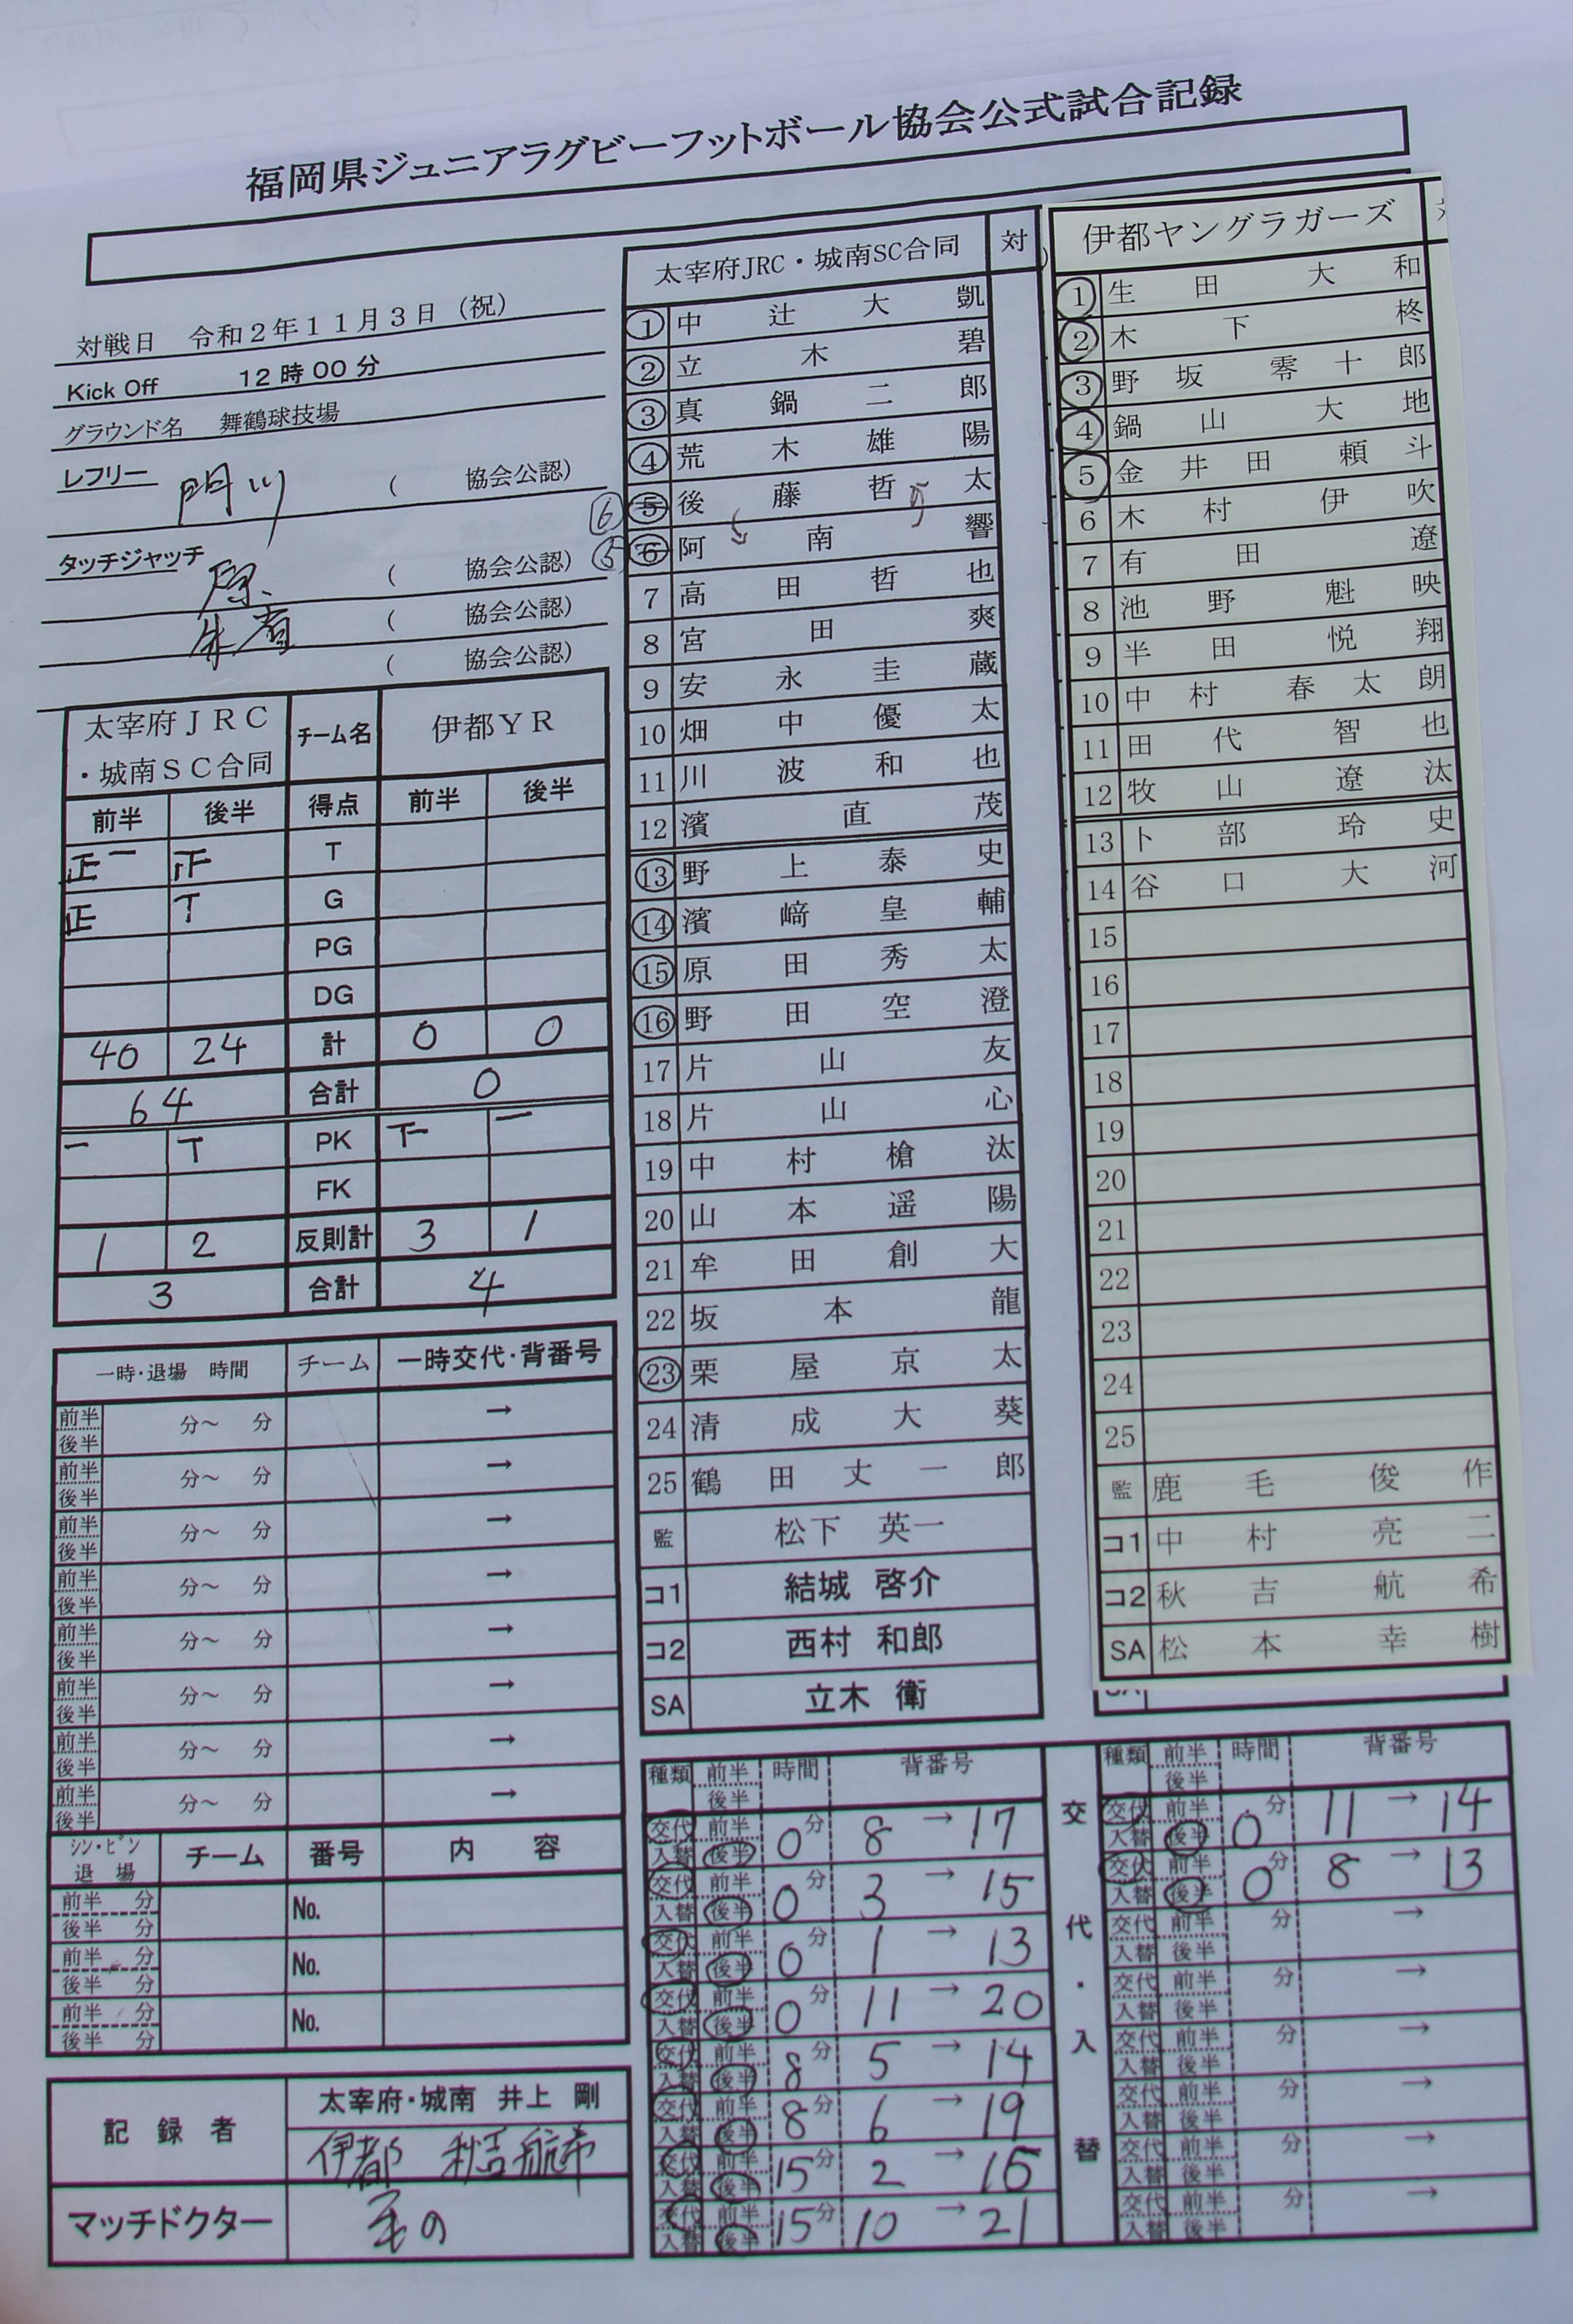 福岡県ジュニアラグビーフットボール協会公式試合記録
対戦日 令和2年11月3日（祝）
Kick Off 12時00分
グラウンド名 舞鶴球技場
レフリー 門川 （ 協会公認）
タッチジャッチ 原 （ 協会公認）
（ 協会公認）
（ 協会公認）
太宰府JRC・城南SC合同 チーム名 伊都YR
前半 後半 得点 前半 後半
正一 正 T
正 T G
PG
DG
40 24 計 0 0
64 合計 0
一 T PK 下 一
FK
1 2 反則計 3 1
3 合計 4
一時・退場 時間 チーム 一時交代・背番号
前半 後半 分～ 分 →
前半 後半 分～ 分 →
前半 後半 分～ 分 →
前半 後半 分～ 分 →
前半 後半 分～ 分 →
前半 後半 分～ 分 →
前半 後半 分～ 分 →
前半 後半 分～ 分 →
シン・ビン 退場 チーム 番号 内容
前半 分 後半 分 No.
前半 分 後半 分 No.
前半 分 後半 分 No.
記録者 太宰府・城南 井上 剛
伊都 秋吉航希
マッチドクター
太宰府JRC・城南SC合同 対
1 中辻大凱
2 立木碧
3 真鍋二郎
4 荒木雄陽
⑥ 5 後藤哲太
⑤ 6 阿南響
7 高田哲也
8 宮田爽
9 安永圭蔵
10 畑中優太
11 川波和也
12 濱直茂
13 野上泰史
14 濱﨑皇輔
15 原田秀太
16 野田空澄
17 片山友
18 片山心
19 中村槍汰
20 山本遥陽
21 牟田創大
22 坂本龍
23 栗屋京太
24 清成大葵
25 鶴田丈一郎
監 松下 英一
コ1 結城 啓介
コ2 西村 和郎
SA 立木 衛
伊都ヤングラガーズ
1 生田大和
2 木下柊
3 野坂零十郎
4 鍋山大地
5 金井田頼斗
6 木村伊吹
7 有田遼
8 池野魁映
9 半田悦翔
10 中村春太朗
11 田代智也
12 牧山遼汰
13 卜部玲史
14 谷口大河
15
16
17
18
19
20
21
22
23
24
25
監 鹿毛俊作
コ1 中村亮二
コ2 秋吉航希
SA 松本幸樹
種類 前半 後半 時間 背番号
交代 入替 前半 後半 0分 8 → 17
交代 入替 前半 後半 0分 3 → 15
交代 入替 前半 後半 0分 1 → 13
交代 入替 前半 後半 0分 11 → 20
交代 入替 前半 後半 8分 5 → 14
交代 入替 前半 後半 8分 6 → 19
交代 入替 前半 後半 15分 2 → 16
交代 入替 前半 後半 15分 10 → 21
交代・入替
種類 前半 後半 時間 背番号
交代 入替 前半 後半 0分 11 → 14
交代 入替 前半 後半 0分 8 → 13
交代 入替 前半 後半 分 →
交代 入替 前半 後半 分 →
交代 入替 前半 後半 分 →
交代 入替 前半 後半 分 →
交代 入替 前半 後半 分 →
交代 入替 前半 後半 分 →